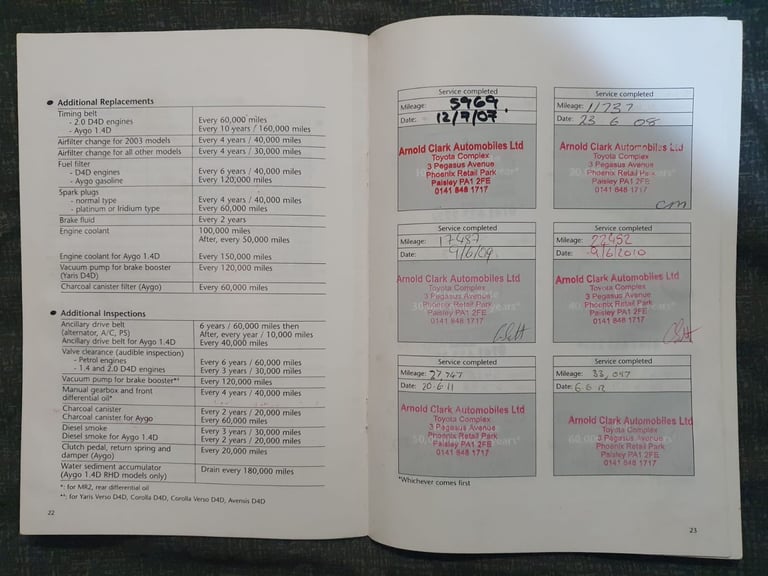 Additional Replacements
Timing belt
- 2.0 D4D engines Every 60,000 miles
- Aygo 1.4D Every 10 years / 160,000 miles
Airfilter change for 2003 models Every 4 years / 40,000 miles
Airfilter change for all other models Every 4 years / 30,000 miles
Fuel filter
- D4D engines Every 6 years / 40,000 miles
- Aygo gasoline Every 120,000 miles
Spark plugs
- normal type Every 4 years / 40,000 miles
- platinum or Iridium type Every 60,000 miles
Brake fluid Every 2 years
Engine coolant 100,000 miles
After, every 50,000 miles
Engine coolant for Aygo 1.4D Every 150,000 miles
Vacuum pump for brake booster Every 120,000 miles
(Yaris D4D)
Charcoal canister filter (Aygo) Every 60,000 miles
Additional Inspections
Ancillary drive belt 6 years / 60,000 miles then
(alternator, A/C, PS) After, every year / 10,000 miles
Ancillary drive belt for Aygo 1.4D Every 40,000 miles
Valve clearance (audible inspection)
- Petrol engines Every 6 years / 60,000 miles
- 1.4 and 2.0 D4D engines Every 3 years / 30,000 miles
Vacuum pump for brake booster*¹ Every 120,000 miles
Manual gearbox and front Every 4 years / 40,000 miles
differential oil*
Charcoal canister Every 2 years / 20,000 miles
Charcoal canister for Aygo Every 60,000 miles
Diesel smoke Every 3 years / 30,000 miles
Diesel smoke for Aygo 1.4D Every 2 years / 20,000 miles
Clutch pedal, return spring and Every 20,000 miles
damper (Aygo)
Water sediment accumulator Drain every 180,000 miles
(Aygo 1.4D RHD models only)
*: for MR2, rear differential oil
**: for Yaris Verso D4D, Corolla D4D, Corolla Verso D4D, Avensis D4D
22
Service completed
Mileage: 5969.
Date: 12/7/07
Arnold Clark Automobiles Ltd
Toyota Complex
3 Pegasus Avenue
Phoenix Retail Park
Paisley PA1 2FE
0141 848 1717
Service completed
Mileage: 11737
Date: 23 6 08
Arnold Clark Automobiles Ltd
Toyota Complex
3 Pegasus Avenue
Phoenix Retail Park
Paisley PA1 2FE
0141 848 1717
cm
Service completed
Mileage: 17487
Date: 9/6/09
Arnold Clark Automobiles Ltd
Toyota Complex
3 Pegasus Avenue
Phoenix Retail Park
Paisley PA1 2FE
0141 848 1717
Service completed
Mileage: 22452
Date: 9/6/2010
Arnold Clark Automobiles Ltd
Toyota Complex
3 Pegasus Avenue
Phoenix Retail Park
Paisley PA1 2FE
0141 848 1717
Service completed
Mileage: 27,747
Date: 20.6.11
Arnold Clark Automobiles Ltd
Toyota Complex
3 Pegasus Avenue
Phoenix Retail Park
Paisley PA1 2FE
0141 848 1717
Service completed
Mileage: 33,047
Date: 6.6.12
Arnold Clark Automobiles Ltd
Toyota Complex
3 Pegasus Avenue
Phoenix Retail Park
Paisley PA1 2FE
0141 848 1717
*Whichever comes first
23